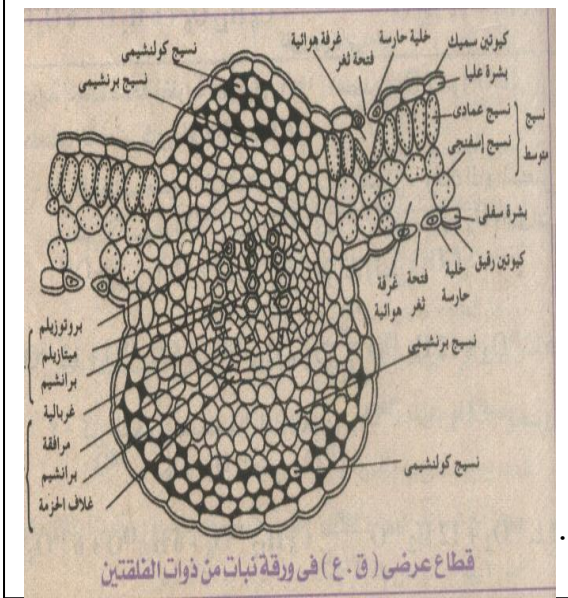 نسيج كولنشيمى
نسيج برنشيمى
غرفة هوائية
فتحة ثغر
خلية حارسة
كيوتين سميك
بشرة عليا
نسيج عمادى
نسيج إسفنجى
نسيج متوسط
بشرة سفلى
كيوتين رقيق
خلية حارسة
فتحة ثغر
غرفة هوائية
نسيج برنشيمى
نسيج كولنشيمى
بروتوزيلم
ميتازيلم
برانشيم
غربالية
مرافقة
برانشيم
غلاف الحزمة
قطاع عرضى (ق.ع) فى ورقة نبات من ذوات الفلقتين